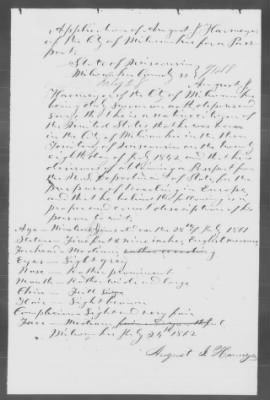 Application of August J. Harmeyer
of the City of Milwaukee for a Pass
port.
State of Wisconsin
Milwaukee County ss
August J.
of the City of Milwaukee
being duly sworn on oath deposes and
says that he is a native citizen of
the United States that he was born
in the City of Milwaukee in the then
Territory of Wisconsin on the twenty
eighth day of July 1842 and that he is
desirous of obtaining a Passport from
the U.S. Department of State for the
purpose of traveling in Europe
and that he believes the following is a
proper and correct description of his
person to wit:
Age – Nineteen years on the 28th of July 1861
Stature – Five feet & nine inches, English measure
Forehead – Medium
Eyes – Light gray
Nose – Rather prominent
Mouth – Rather wide and large
Chin – Full
Hair – Light brown
Complexion – Light and very fair
Face – Medium
Milwaukee July 24th 1862
August J. Harmeyer